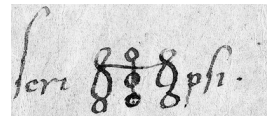 scri psi.